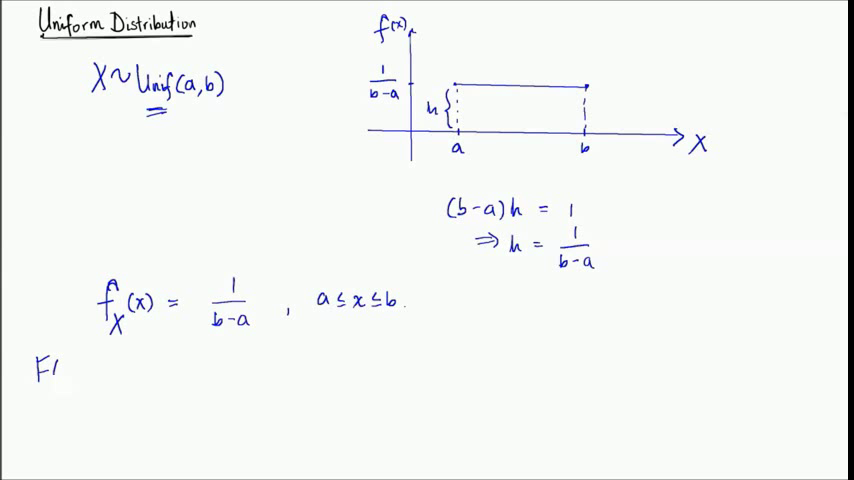 Uniform Distribution
X ~ Unif(a,b)
f(x)
1/(b-a)
h {
a
b
X
(b-a)h = 1
⇒ h = 1/(b-a)
f_X(x) = 1/(b-a) , a ≤ x ≤ b.
F(